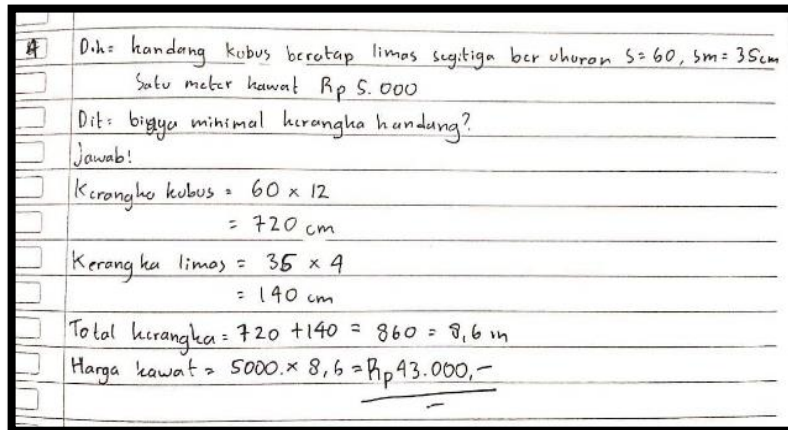 4 Dik= kandang kubus beratap limas segitiga ber ukuran S=60, sm= 35cm
Satu meter kawat Rp 5.000
Dit: biaya minimal kerangka kandang?
Jawab!
Kerangka kubus = 60 × 12
= 720 cm
Kerangka limas = 35 × 4
= 140 cm
Total kerangka = 720 +140 = 860 = 8,6 m
Harga kawat = 5000.× 8,6 = Rp 43.000,-